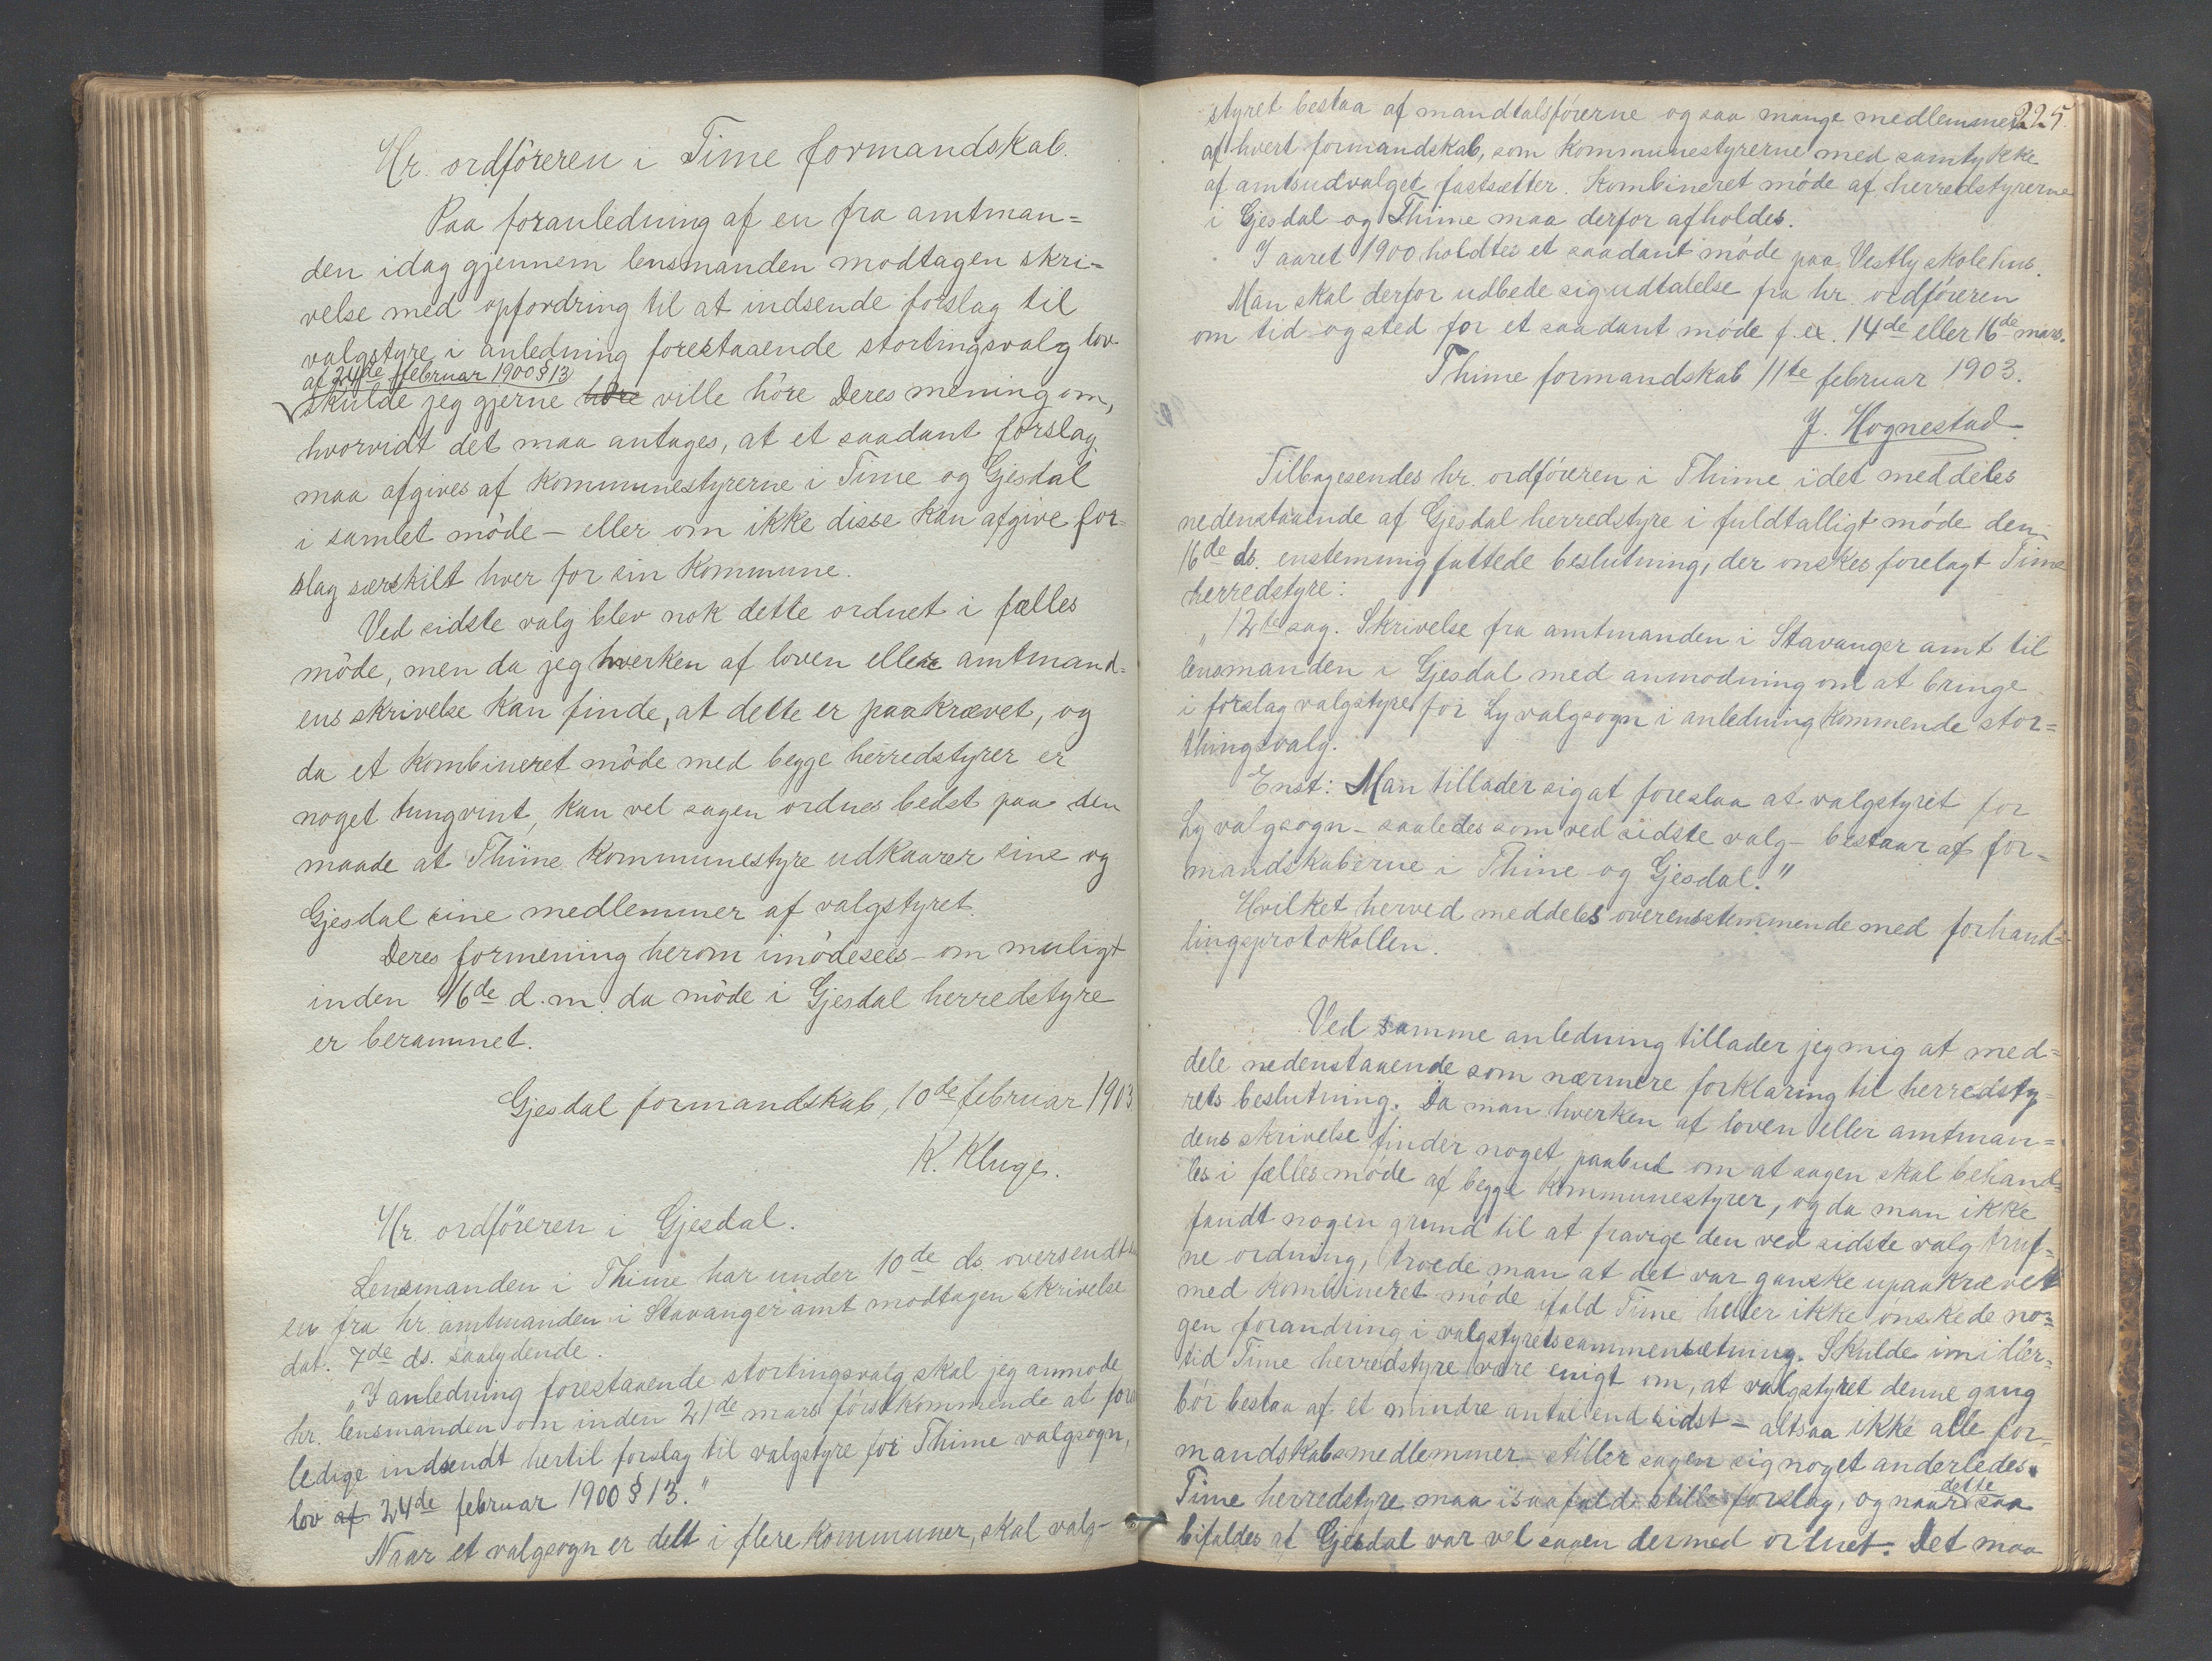 Hr. ordföreren i Time formandskab.
Paa foranledning af en fra amtman=
den idag gjennem lensmanden modtagen skri=
velse med opfordring til at indsende forslag til
valgstyre i anledning forestaaende stortingsvalg lov
af 24de februar 1900 § 13
skulde jeg gjerne höre ville höre Deres mening om,
hvorvidt det maa antages, at et saadant forslag
maa afgives af kommunestyrerne i Time og Gjesdal
i samlet möde – eller om ikke disse kan afgive for=
slag særskilt hver for sin kommune.
Ved sidste valg blev nok dette ordnet i fælles
möde, men da jeg hverken af loven eller amtmand=
ens skrivelse kan finde, at dette er paakrævet, og
da et kombineret möde med begge herredstyrer er
noget tungvint, kan vel sagen ordnes bedst paa den
maade at Thime kommunestyre udkaarer sine og
Gjesdal sine medlemmer af valgstyret.
Deres formening herom imödesees – om muligt
inden 16de d.m. da möde i Gjesdal herredstyre
er berammet.
Gjesdal formandskab, 10de februar 1903
K. Kluge.
Hr. ordföreren i Gjesdal.
Lensmanden i Thime har under 10de ds. oversendt
en fra hr. amtmanden i Stavanger amt modtagen skrivelse
dat. 7de ds. saalydende.
„I anledning forestaaende stortingsvalg skal jeg anmode
hr. lensmanden om inden 21de mars förstkommende at fore
ledige indsendt hertil forslag til valgstyre for Thime valgsogn,
lov af 24de februar 1900 § 13."
Naar et valgsogn er delt i flere kommuner, skal valg-
225.
styret bestaa af mandtalsförerne og saa mange medlemmer
af hvert formandskab, som kommunestyrerne med samtykke
af amtsudvalget fastsætter. Kombineret möde af herredstyrerne
i Gjesdal og Thime maa derfor afholdes.
I aaret 1900 holdtes et saadant möde paa Vestly skolehus.
Man skal derfor udbede sig udtalelse fra hr. ordföreren
om tid og sted for et saadant möde f. ex. 14de eller 16de mars.
Thime formandskab 11te februar 1903.
J. Hognestad
Tilbagesendes hr. ordföreren i Thime idet meddeles
nedenstaaende af Gjesdal herredstyre i fuldtalligt möde den
16de ds. enstemmig fattede beslutning, der önskes forelagt Time
herredstyre:
„12te sag. Skrivelse fra amtmanden i Stavanger amt til
lensmanden i Gjesdal med anmodning om at bringe
i forslag valgstyre for Ly valgsogn i anledning kommende stor=
thingsvalg.
Enst: Man tillader sig at foreslaa at valgstyret for
Ly valgsogn – saaledes som ved sidste valg – bestaar af for=
mandskaberne i Thime og Gjesdal."
Hvilket herved meddeles overensstemmende med forhand=
lingsprotokollen.
Ved samme anledning tillader jeg mig at med=
dele nedenstaaende som nærmere forklaring til herredsty=
rets beslutning. Da man hverken af loven eller amtman=
dens skrivelse finder noget paabud om at sagen skal behand=
les i fælles möde af begge kommunestyrer, og da man ikke
fandt nogen grund til at fravige den ved sidste valg truf=
ne ordning, troede man at det var ganske upaakrævet
med kombineret möde ifald Time heller ikke önskede no=
gen forandring i valgstyrets sammensætning. Skulde imidler=
tid Time herredstyre være enigt om, at valgstyret denne gang
bör bestaa af et mindre antal end sidst – altsaa ikke alle for=
mandskabsmedlemmer – stiller sagen sig noget anderledes.
Time herredstyre maa isaafald stille forslag, og naar dette saa
bifaldes af Gjesdal var vel sagen dermed ordnet. Det maa